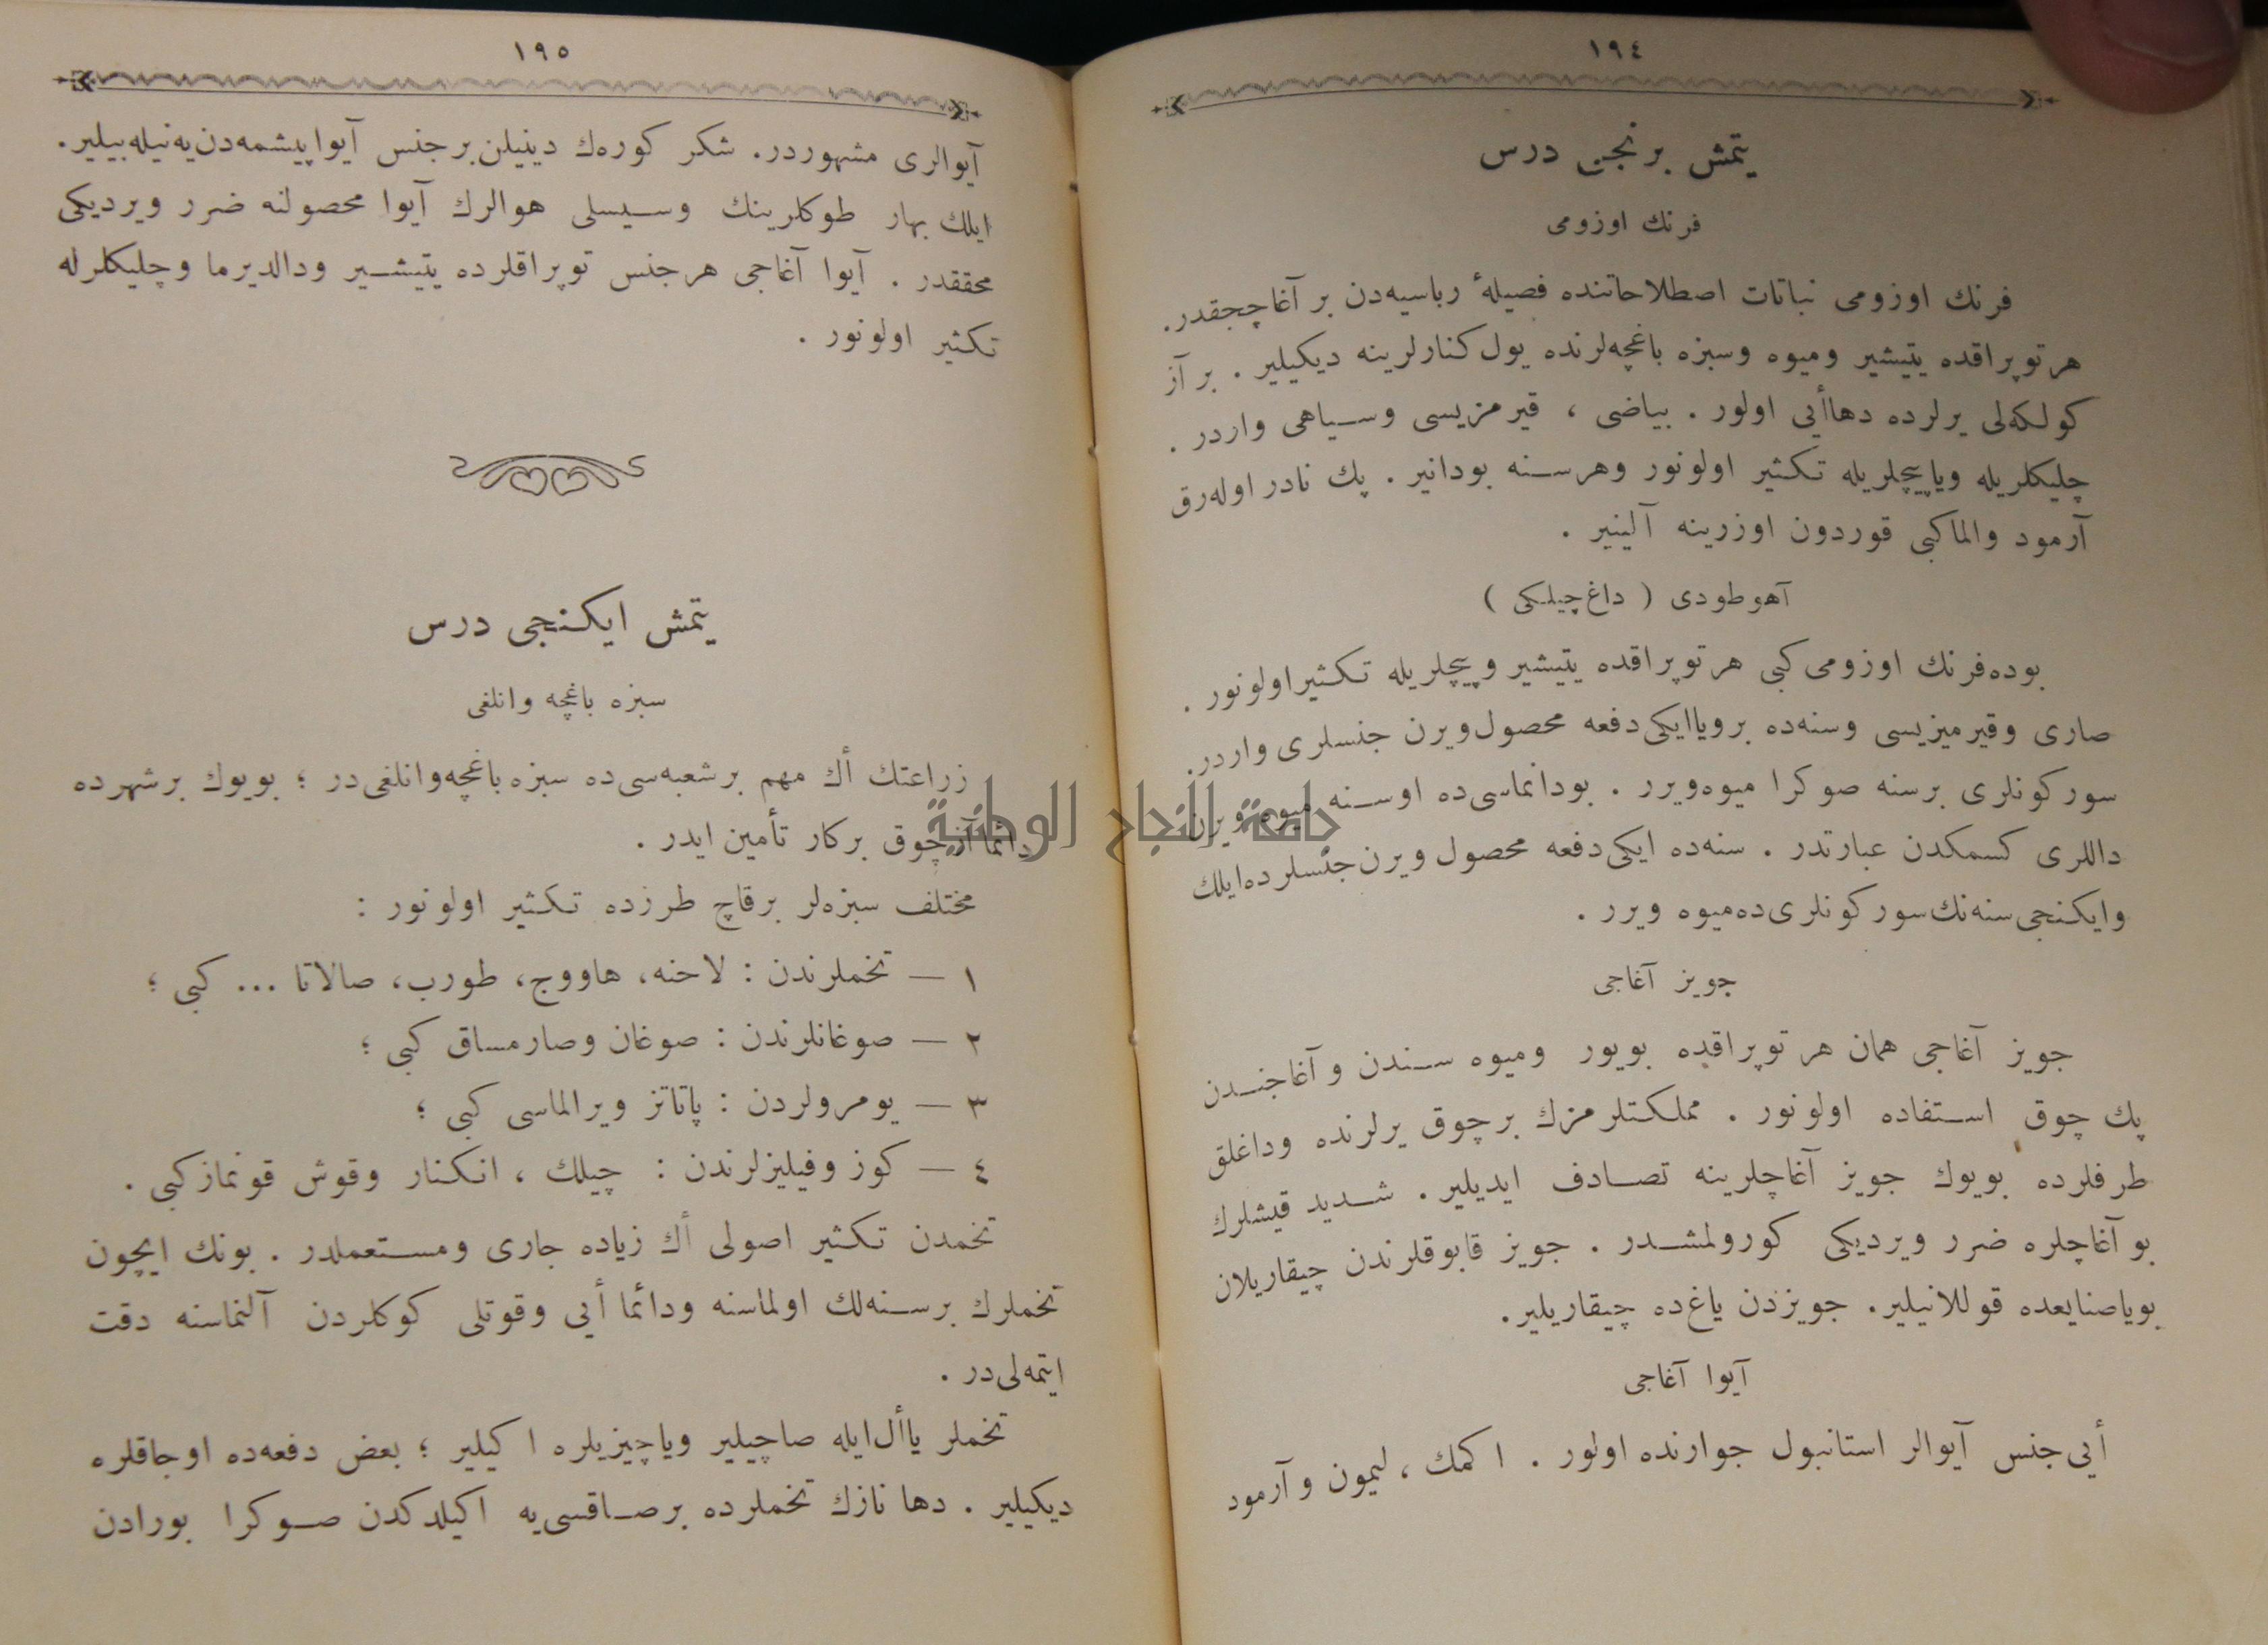 ١٩٤
يتمش برنجی درس
فرنك اوزومی
فرنك اوزومی نباتات اصطلاحاتنده فصيلهٔ رباسيه‌دن بر آغاججقدر.
هر توپراقده يتيشير وميوه وسبزه باغچه‌لرنده يول كنارلرينه ديكيلير . بر آز
كولكه‌لی يرلرده دها أيی اولور . بياضی ، قيرمزيسی وسياهی واردر .
چليكلريله وياپيچلريله تكثير اولونور وهر سنه بودانير . پك نادر اوله‌رق
آرمود والما كبی قوردون اوزرينه آلينير .
آهوطودی ( داغ چيلكی )
بوده فرنك اوزومی كبی هر توپراقده يتيشير وپيچلريله تكثير اولونور .
صاری وقيرميزيسی وسنه‌ده بر ويا ايكی دفعه محصول ويرن جنسلری واردر.
سوركونلری برسنه صوكرا ميوه ويرر . بودانماسی‌ده اوسنه ميوه ويرن
داللری كسمكدن عبارتدر . سنه‌ده ايكی دفعه محصول ويرن جنسلرده ايلك
وايكنجی سنه‌نك سوركونلری‌ده ميوه ويرر .
جويز آغاجی
جويز آغاجی همان هر توپراقده بويور وميوه سندن و آغاجندن
پك چوق استفاده اولونور . مملكتلرمزك بر چوق يرلرنده وداغلق
طرفلرده بويوك جويز آغاچلرينه تصادف ايديلير . شديد قيشلرك
بو آغاچلره ضرر ويرديكی كورولمشدر . جويز قابوقلرندن چيقاريلان
بويا صنايعده قوللانيلير. جويزدن ياغ ده چيقاريلير.
آيوا آغاجی
أيی جنس آيوالر استانبول جوارنده اولور . اكمك ، ليمون و آرمود
١٩٥
آيوالری مشهوردر. شكر كوره‌ك دينيلن بر جنس آيوا پيشمه‌دن يه‌نيله‌بيلير.
ايلك بهار طوكلرينك وسيسلی هوالرك آيوا محصولنه ضرر ويرديكی
محققدر . آيوا آغاجی هر جنس توپراقلرده يتيشير ودالديرما وچليكلرله
تكثير اولونور .
يتمش ايكنجی درس
سبزه باغچه وانلغی
زراعتك أك مهم بر شعبه‌سی‌ده سبزه باغچه‌وانلغی‌در ؛ بويوك بر شهرده
دائما آز چوق بركار تأمين ايدر .
مختلف سبزه‌لر برقاچ طرزده تكثير اولونور :
١ — تخملرندن : لاحنه، هاووج، طورب، صالاتا ... كبی ؛
٢ — صوغانلرندن : صوغان وصارمساق كبی ؛
٣ — يومرولردن : پاتاتز ويرالماسی كبی ؛
٤ — كوز وفيليزلرندن : چيلك ، انكنار وقوش قونماز كبی .
تخمدن تكثير اصولی أك زياده جاری ومستعملدر . بونك ايچون
تخملرك برسنه‌لك اولماسنه ودائما أيی وقوتلی كوكلردن آلنماسنه دقت
ايتمه‌لی‌در .
تخملر يا أل ايله صاچيلير ويا چيزيلره اكيلير ؛ بعض دفعه‌ده اوجاقلره
ديكيلير . دها نازك تخملرده بر صاقسی‌يه اكيلدكدن صوكرا بورادن
جامعة النجاح الوطنية